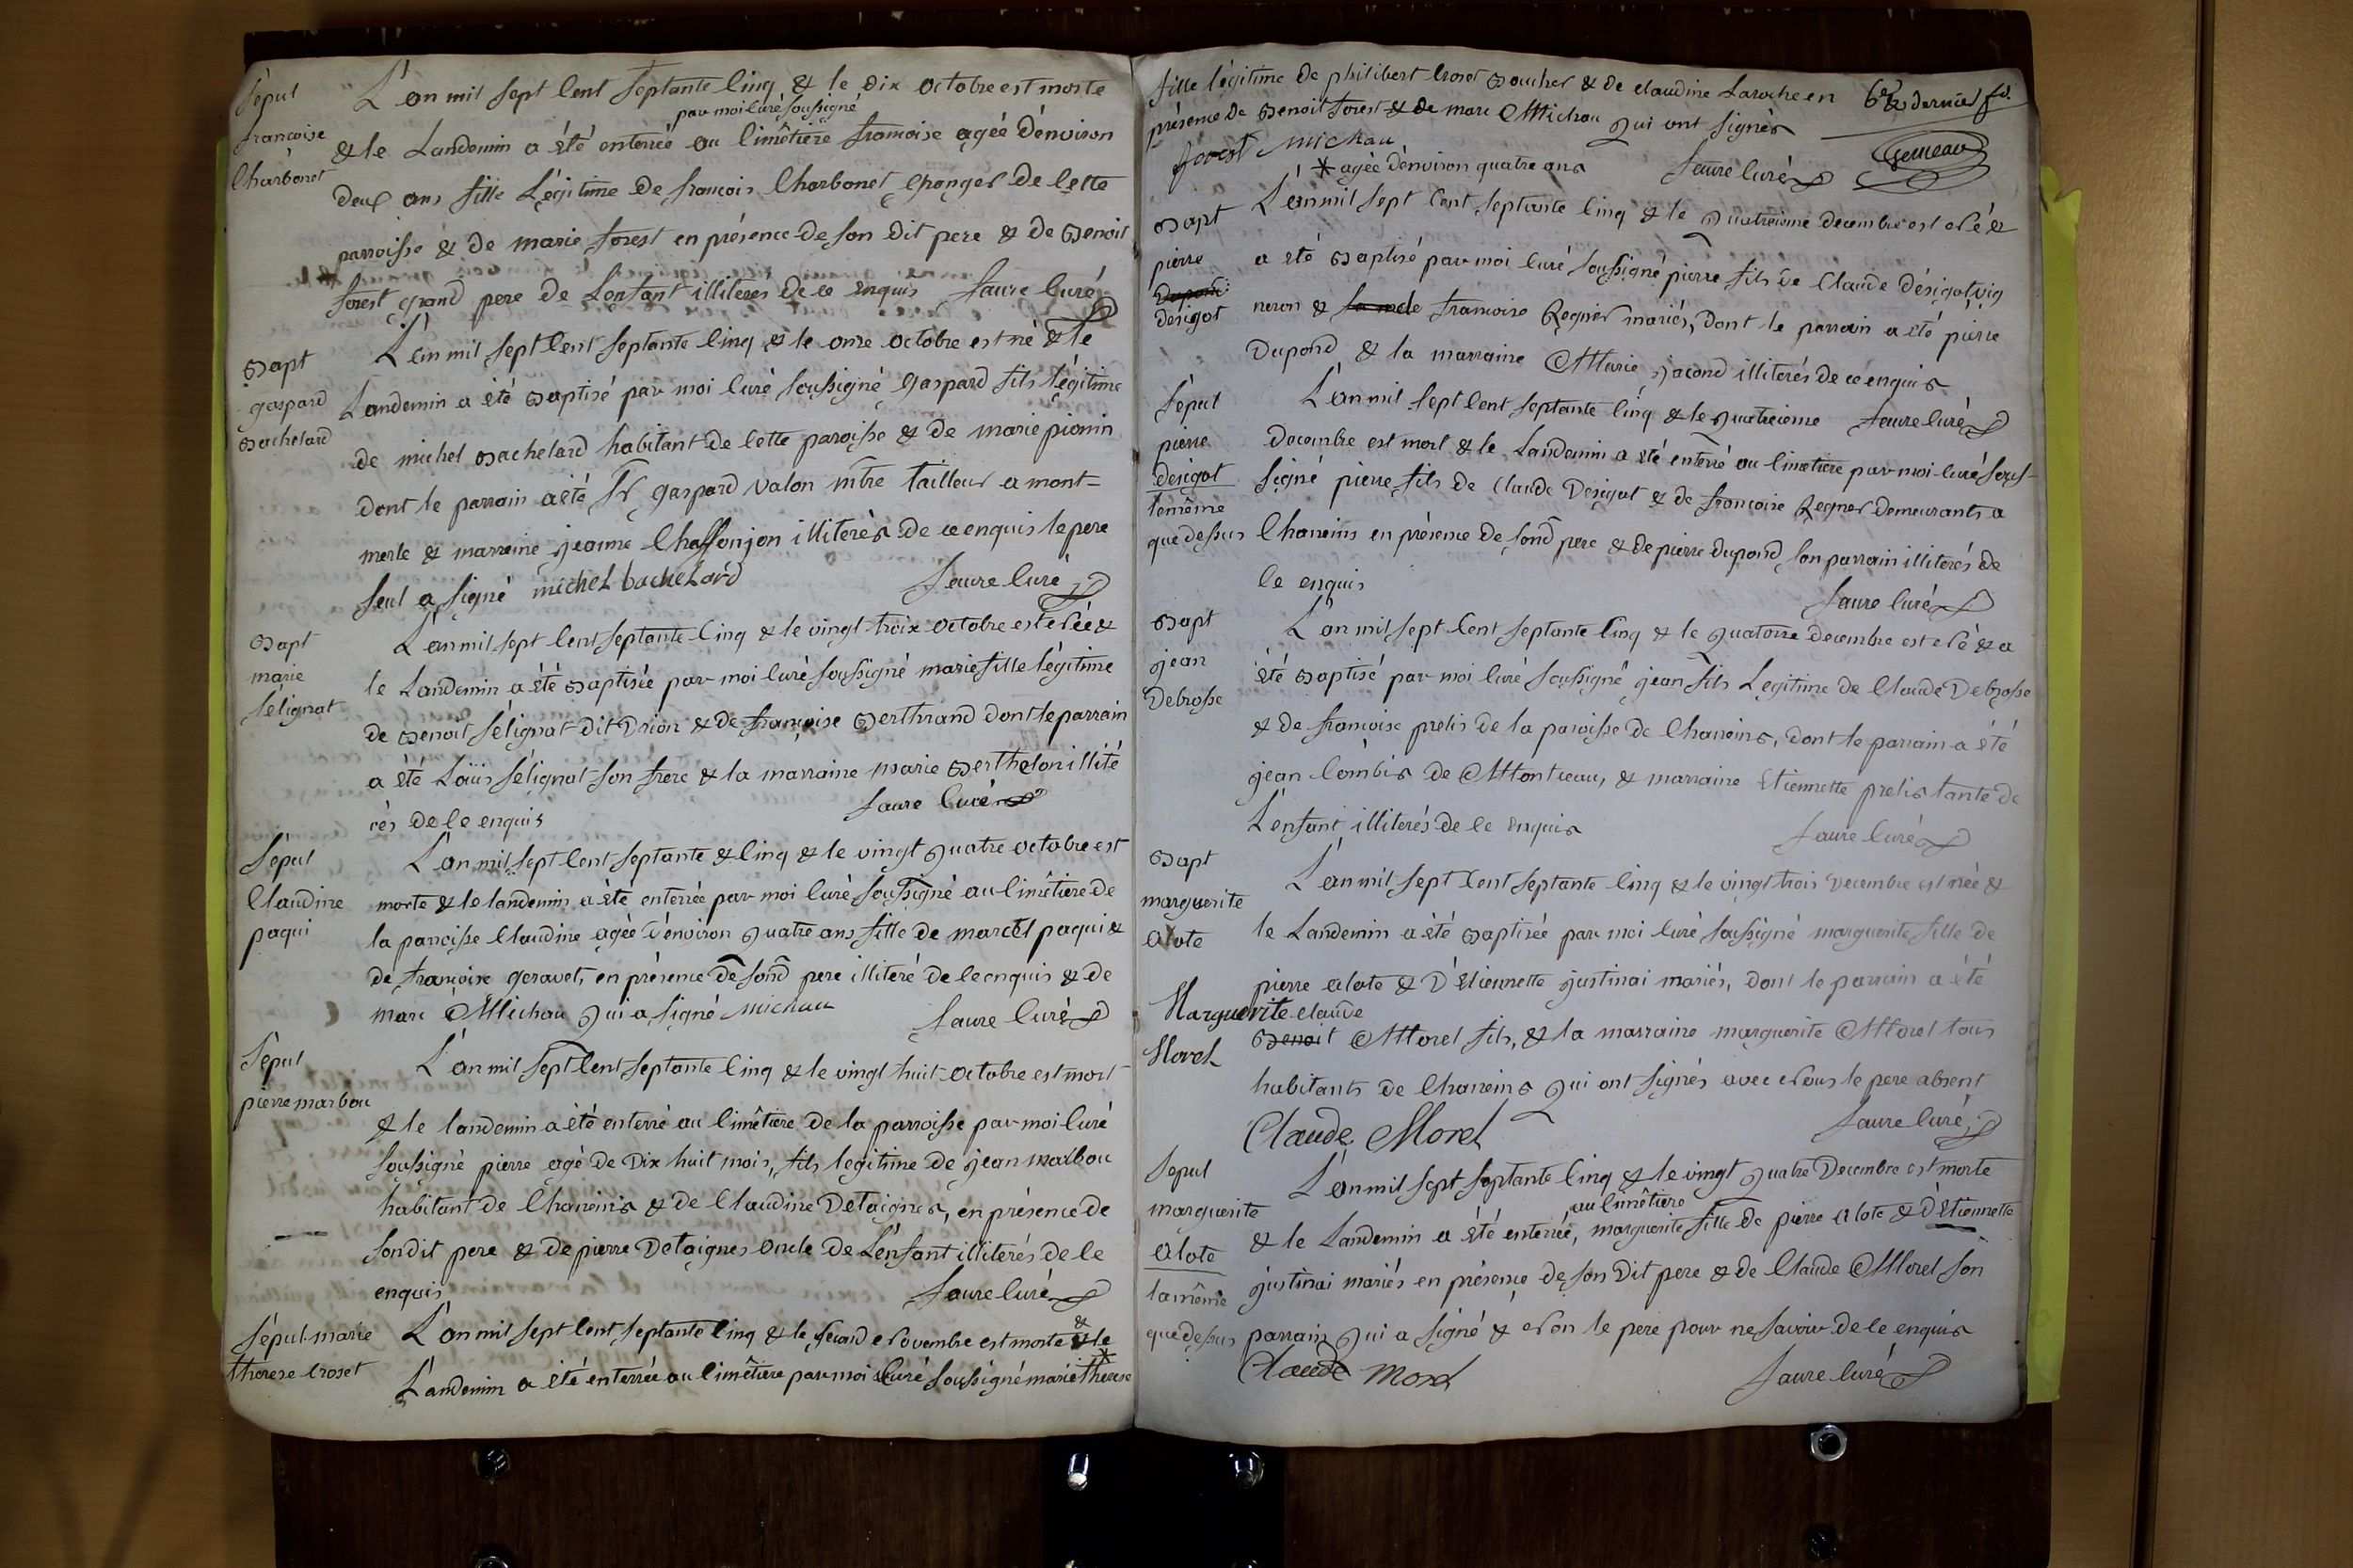 Sépul
françoise
Charbonet
L'an mil sept Cent Septante Cinq & le dix octobre est morte
par moi Curé soussigné
& le Landemin a été enterrée au Cimêtiere françoise agée d'environ
deux ans fille Légitime de françois Charbonet granger de Cette
parroisse & de marie forest en présence de son dit pere & de Benoit
forest grand pere de Lenfant illiteres de ce enquis faure Curé
Bapt
gaspard
Bachelard
L'an mil sept Cent Septante Cinq & le onze octobre est né & le
Landemin a été Baptisé par moi Curé soussigné gaspard fils légitime
de michel Bachelard habitant de Cette paroisse & de marie pionin
dont le parrain a été Sr gaspard valon mtre tailleur a mont=
merle & marreine jeanne Chaffonjon illiterés de ce enquis le pere
seul a signé michel bachelard faure Curé
Bapt
marie
Sélignat
L'an mil sept Cent septante Cinq & le vingt troix octobre est née &
le Landemin a été Baptisée par moi Curé soussigné marie fille légitime
de Benoit Sélignat dit Drion & de françoise Berthrand dont le parrain
a été Loüis Sélignat son frere & la marraine marie Berthelon illité
rés de Ce enquis faure Curé
Sépul
Claudine
paqui
L'an mil sept Cent septante & Cinq & le vingt quatre octobre est
morte & le landemin a été enterrée par moi Curé soussigné au Cimêtiere de
la paroisse Claudine agée d'environ quatre ans fille de marcel paqui &
de françoise geravet, en présence de sond pere illiteré de Ce enquis & de
marc Michau qui a signé michau faure Curé
Sépul
pierre marbou
L'an mil sept Cent septante Cinq & le vingt huit octobre est mort
& le landemin a été enterré au Cimêtiere de la parroisse par moi Curé
soussigné pierre agé de dix huit mois, fils legitime de jean marbou
habitant de Chaneins & de Claudine Detaignes, en présence de
son dit pere & de pierre Detaignes oncle de L'enfant illiterés de Ce
enquis faure Curé
Sépul marie
therese Croset
L'an mil sept Cent septante Cinq & le second novembre est morte & le
Landemin a été enterrée au Cimêtiere par moi Curé soussigné marie therese *
fille légitime de philibert Croset Boucher & de claudine Laroche en
présence de Benoit forest & de marc Michau qui ont signés
forest michau
* agée d'environ quatre ans faure Curé
6e & dernier f.
Gemeau
Bapt
pierre
Dupond
désigot
L'an mil sept Cent septante Cinq & le quatrieme decembre est né &
a été Baptisé par moi Curé soussigné pierre fils de Claude Désigot vig
neron & françoise Regner mariés, dont le parrain a été pierre
Dupond & la marraine Marie jacond illiterés de ce enquis
Sépul
pierre
desigot
le même
que dessus
L'an mil sept Cent septante Cinq & le quatrieme faure Curé
decembre est mort & le Landemin a été enterré au Cimetiere par moi Curé sous-
signé pierre, fils de Claude Desigot & de françoise Regner demeurants a
Chaneins en présence de sond pere & de pierre dupond son parrain illiterés de
Ce enquis
faure Curé
Bapt
jean
Debrosse
L'an mil sept Cent septante Cinq & le quatorze decembre est né & a
été Baptisé par moi Curé soussigné jean fils Legitime de Claude Debrosse
& de françoise prelis de la paroisse de Chaneins, dont le parrain a été
jean Combis de Montceau, & marraine Etiennette prelis tante de
L'enfant illiterés de Ce enquis faure Curé
Bapt
marguerite
alote
Marguerite
Morel
L'an mil sept Cent septante Cinq & le vingt trois decembre est née &
le Landemin a été Baptisée par moi Curé soussigné marguerite fille de
pierre alote & D'Etiennette justinai mariés, dont le parrain a été
claude
Benoit Morel fils, & la marraine marguerite Morel tous
habitants de Chaneins qui ont signés avec nous le pere absent
Claude Morel faure Curé
Sepul
marguerite
alote
la même
que dessus
L'an mil sept septante Cinq & le vingt quatre Decembre est morte
au Cimêtiere
& le Landemin a été enterrée, marguerite fille de pierre alote & d'Etiennette
justinai mariés en présence de son dit pere & de Claude Morel son
parrain qui a signé & non le pere pour ne savoir de Ce enquis
Claude Morel faure Curé